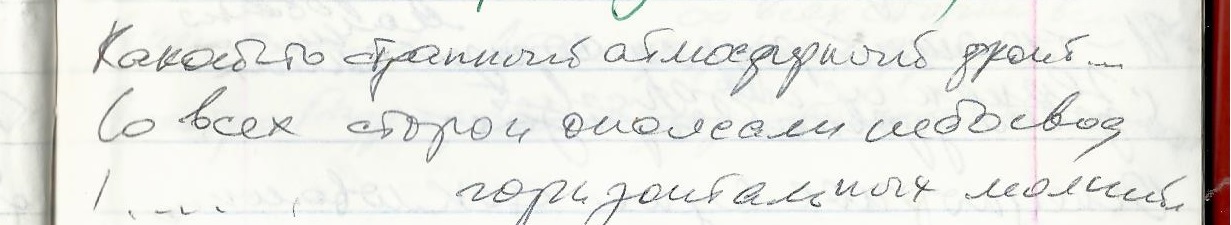 Какой то странный атмосферный фронт...
Со всех сторон опоясали небосвод
горизонтальных молний